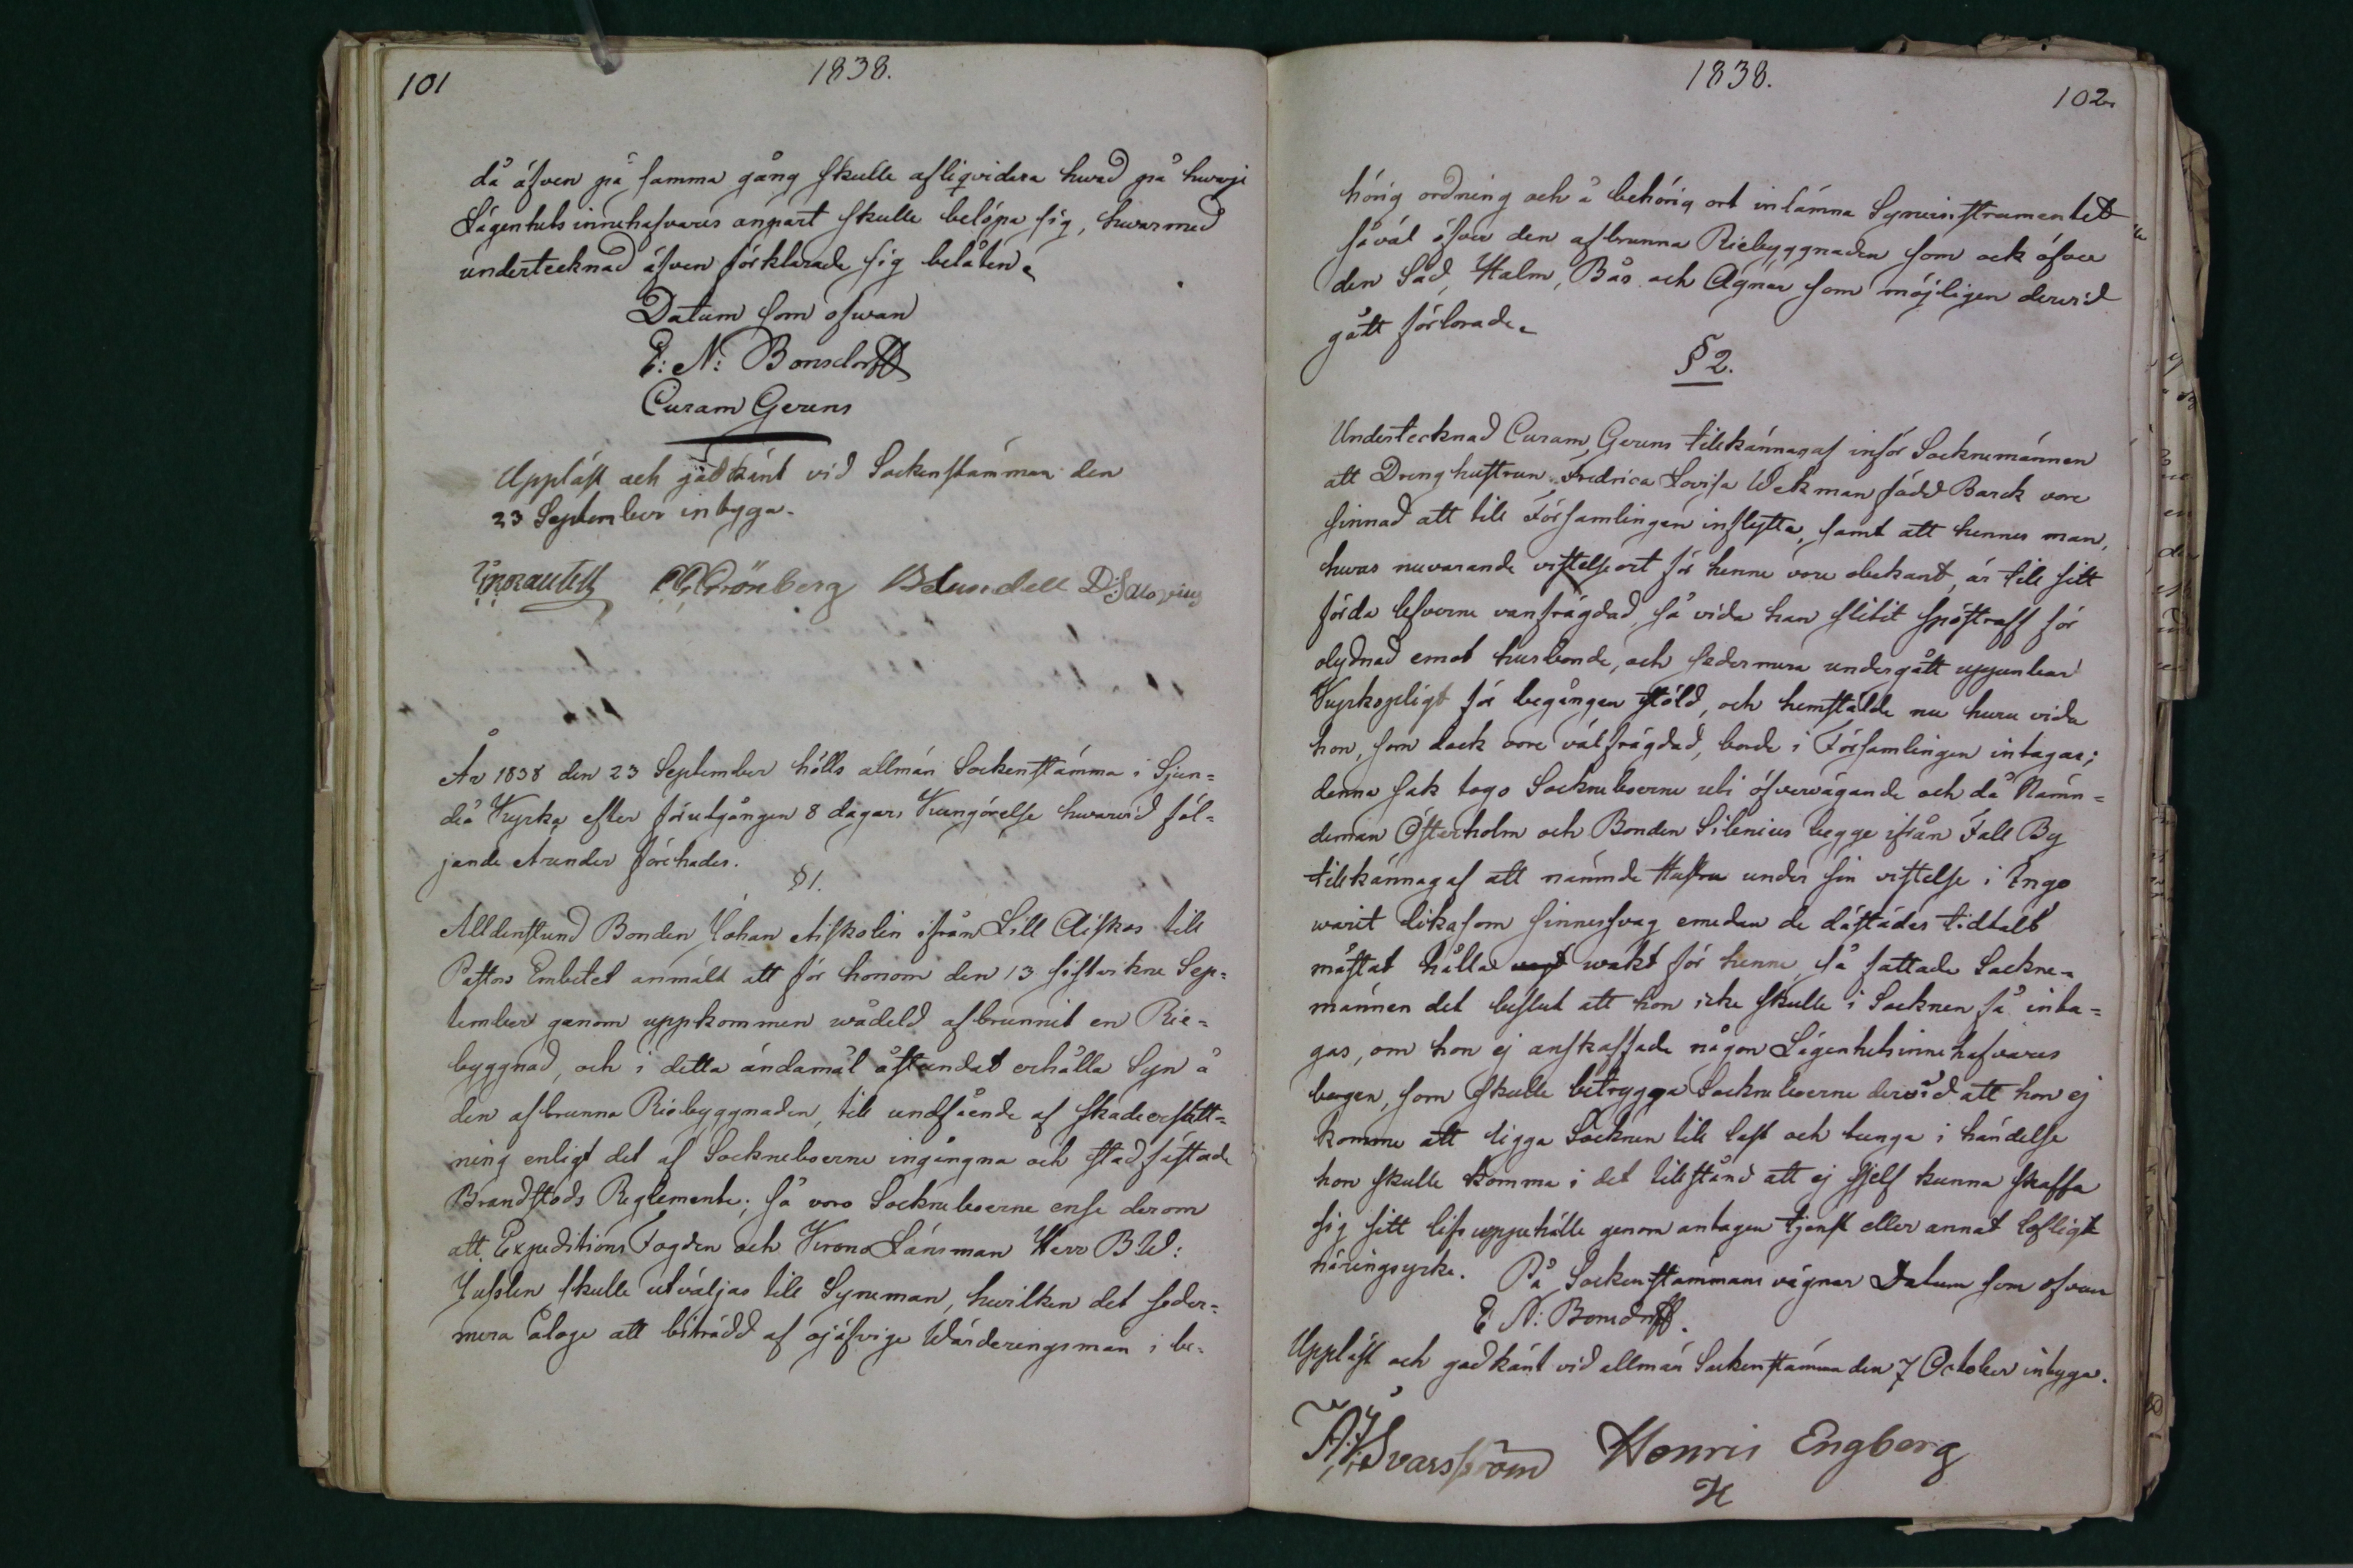 101
1838.
då äfven på samma gång skulle afliqvidera hwad på hwarje
Lägenhets innehafvares anpart skulle belöpa sig, hwarmed
undertecknad äfven förklarade sig belåten.
Datum som ofwan
E: N: Bonsdorff
Curam Gerens
Uppläst och godkänt vid Sockenstämman den
23 September intyga.
Grönberg Lundell
År 1838 den 23 September hölls allmän Sockenstämma i Sjun=
deå Kyrka efter förutgången 8 dagars Kungörelse hwarwid föl=
jande Ärender förehades.
§ 1.
Alldenstund Bonden Johan Aiskolin ifrån Lill Aiskos till
Pastors Embetet anmält att för honom den 13 sistvikne Sep=
tember genom uppkommen wådeld afbrunnit en Rie=
byggnad, och i detta ändamål åstundat erhålla Syn å
den afbrunna Riebyggnaden, till undfående af skadeersätt=
ning enligt det af Sockneboerne ingångna och stadfästade
Brandstods Reglemente; så voro Sockneboerne ense derom
att Expeditions Fogden och Krono Länsman Herr B. W:
Juslen skulle utväljas till Syneman, hwilken det seder=
mera ålåge att biträdd af ojäfvige Wärderingsmän i be=
1838.
102.
hörig ordning och å behörig ort inlämna Syneinstrumentet
såväl öfver den afbrunna Riebyggnaden som ock öfver
den Säd, Halm, Bås och Agnar som möjligen derwid
gått förlorade.
§ 2.
Undertecknad Curam Gerens tillkännagaf inför Socknemännen
att Dreng hustrun Fredrica Lovisa Wekman född Barck vore
sinnad att till Församlingen inflytta, samt att hennes man,
hwars nuvarande vistelseort för henne vore obekant, är till sitt
förda lefverne vanfrägdad, så vida han slitit spöstraff för
olydnad emot husbonde, och sedermera undergått uppenbar
Kyrkopligt för begången stöld, och hemstälde nu huru vida
hon, som dock vore välfrägdad, borde i Församlingen intagas;
denna sak togo Sockneboerne uti öfvervägande och då Nämn=
deman Österholm och Bonden Silenius begge ifrån Fall By
tillkännagaf att nämnde Hustru under sin vistelse i Ingo
warit likasom sinnessvag emedan de dästädes tidtals
måstat hålla wakt för henne, så fattade Sockne=
männen det beslut att hon icke skulle i Socknen få inta=
gas, om hon ej anskaffade någon Lägenhetsinnehafvares
borgen, som skulle betrygga Sockneboerne derwid att hon ej
komme att ligga Socknen till last och tunga i händelse
hon skulle komma i det tillstånd att ej sjelf kunna skaffa
sig sitt lifs uppehälle genom antagen tjenst eller annat lofligt
näringsyrke. På Sockenstämmans vägnar Datum som ofvan
E. N: Bonsdorff.
Uppläst och godkänt vid allmän Sockenstämma den 7 October intyga.
Svarsström Henric Engberg